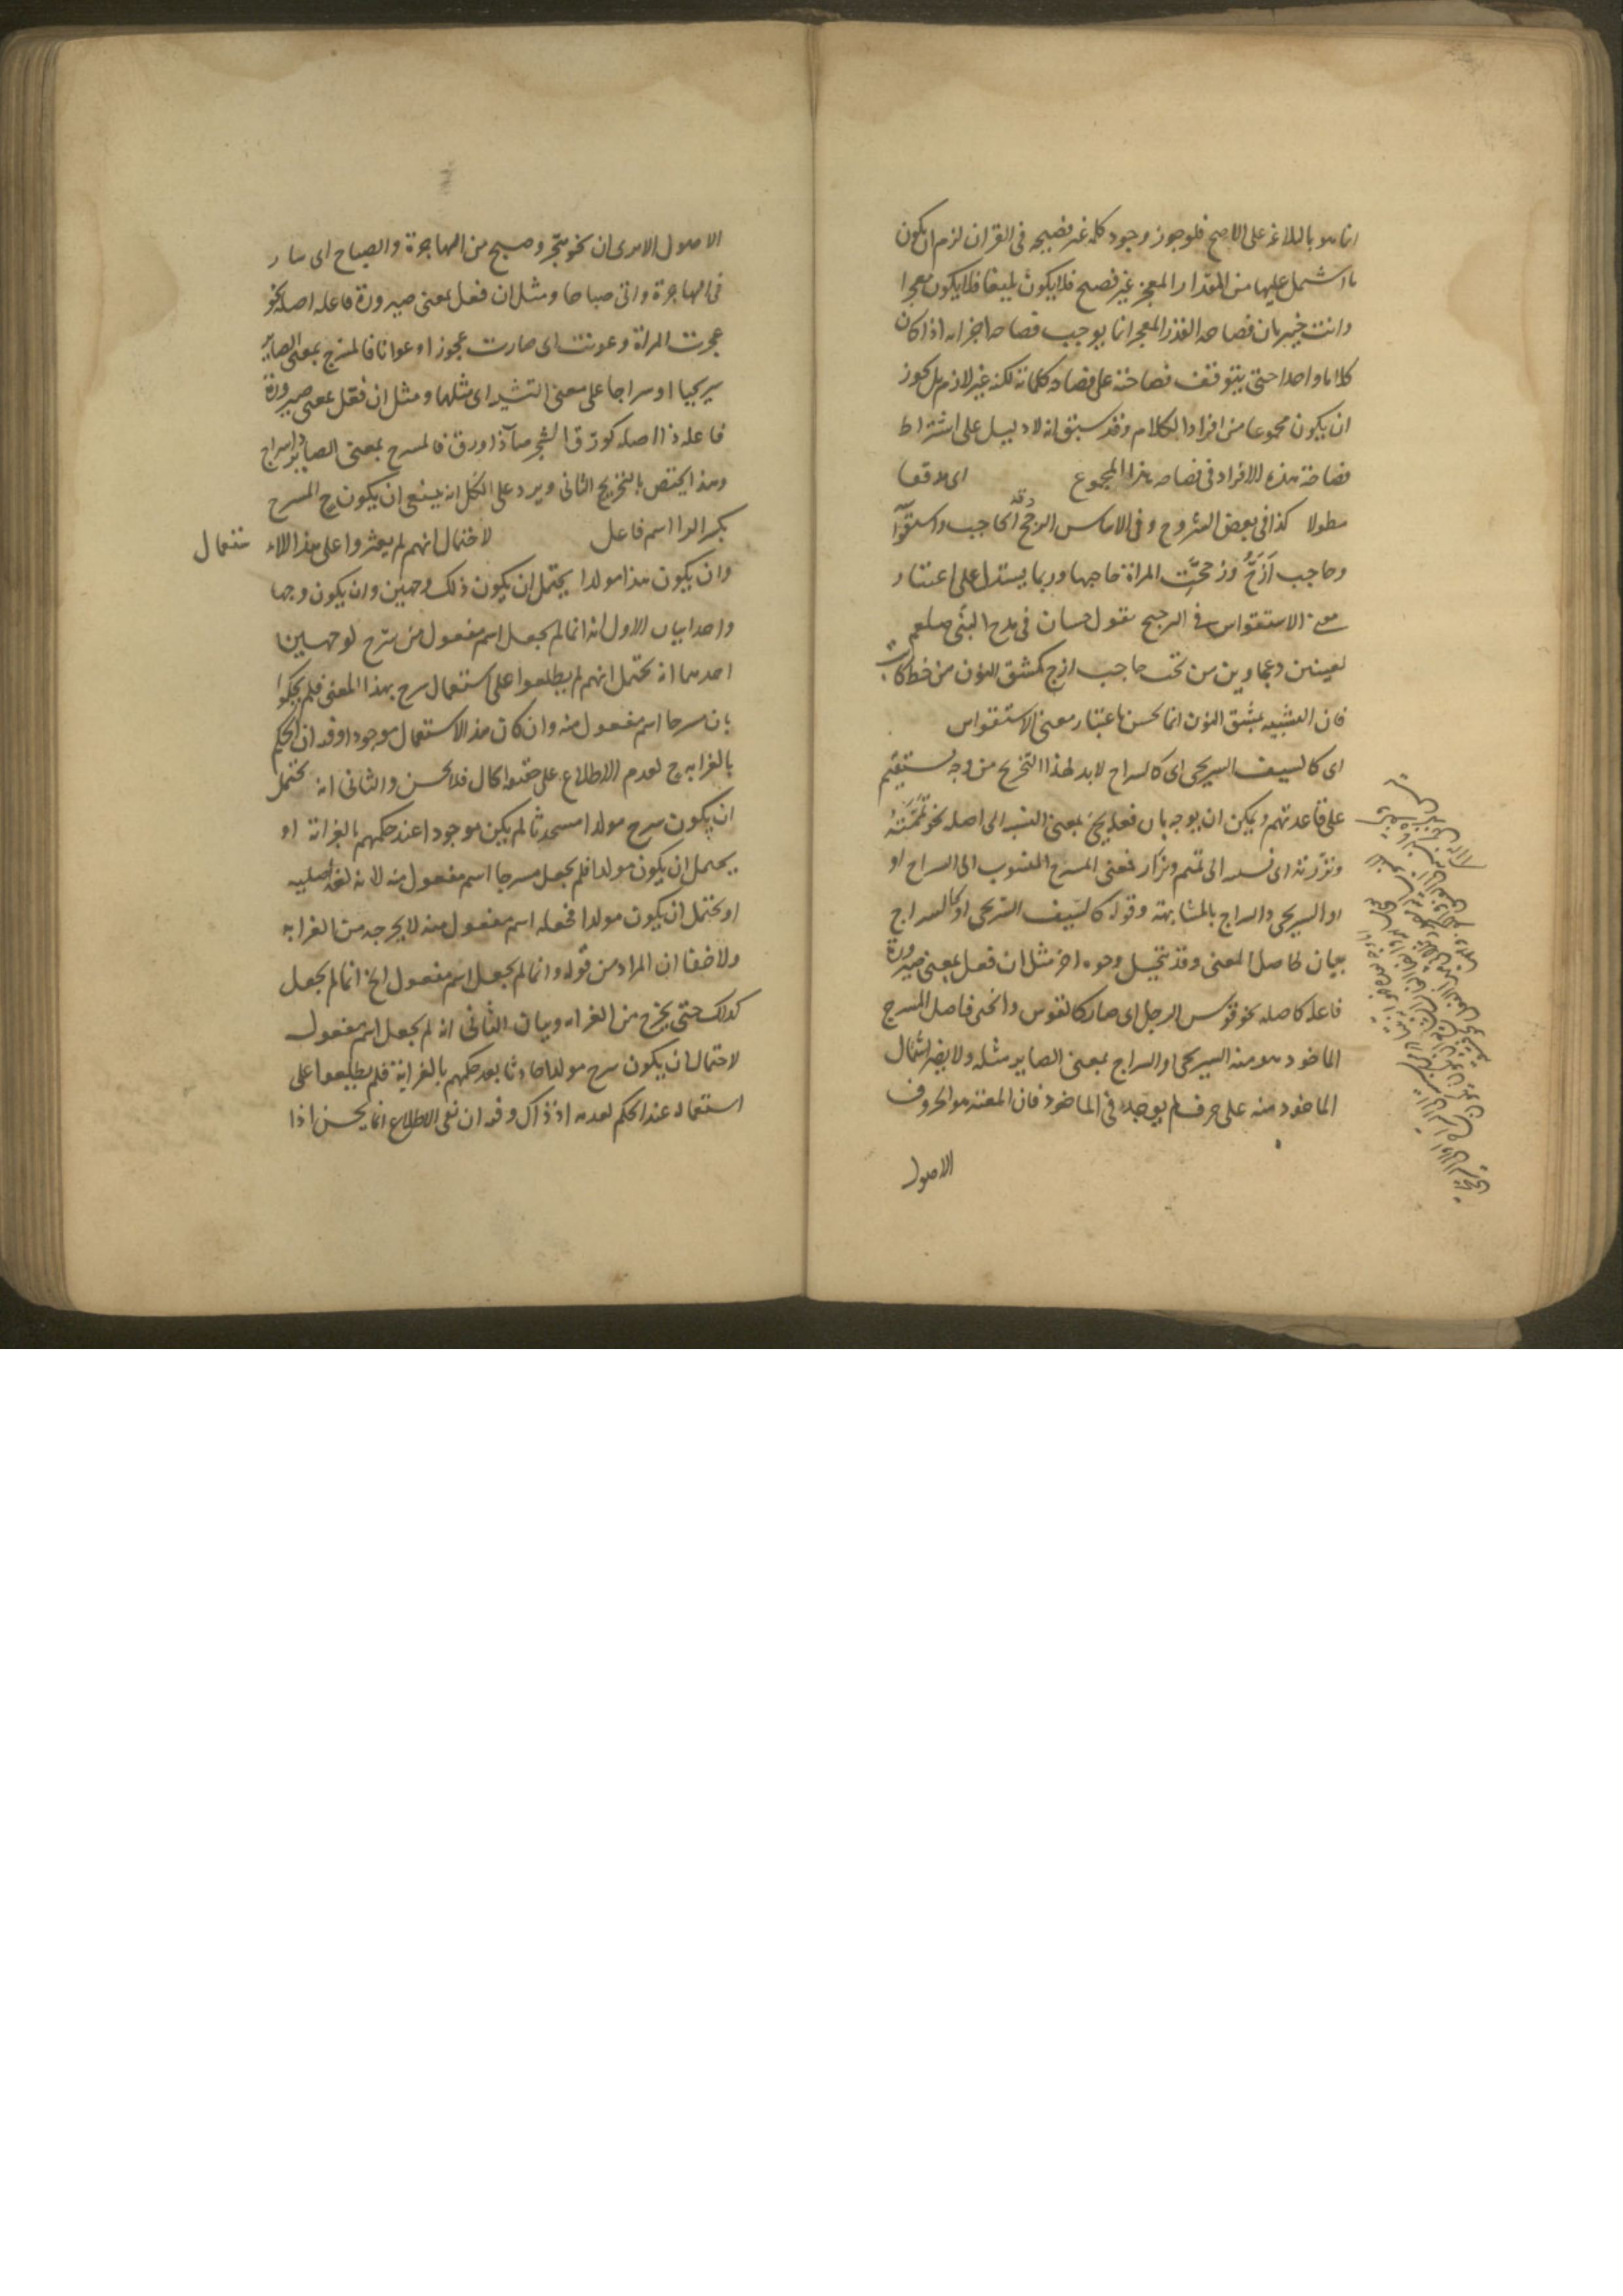 انما هو بالبلاغة على الاصح فلو جوز وجود كلمة غير فصيحة فى القران لزم ان يكون
ما اشتمل عليها من المقدار المعجز غير فصيح فلا يكون بليغا فلا يكون معجزا
وانت خبير بان فصاحة القدر المعجز انما يوجب فصاحة اجزائه اذا كان
كلاما واحدا حتى يتوقف فصاحته على فصاحة كلماته لكنه غير لازم بل يجوز
ان يكون مجموعا من افراد الكلام وقد سبق انه لا دليل على اشتراط
فصاحة هذه الافراد فى فصاحة هذا المجموع اى مدققا
مطولا كذا فى بعض الشروح وفى الاساس الزجج دقة الحاجب واستقواسه
وحاجب اَزَجُّ وزججت المراة حاجبها وربما يستدل على اعتبار
معنى الاستقواس فى الزجج بقول حسان فى مدح النبى صلعم
بعينين دعجاوين من تحت حاجب ازج كمشق النون من خط كاتب
فان التشبيه بمشق النون انما يحسن باعتبار معنى الاستقواس
اى كالسيف السريجى اى كالسراج لا بد لهذا التخريج من وجه مستقيم
على قاعدتهم ويمكن ان يوجه بان فعل يجئ بمعنى النسبة الى اصله نحو تَمَّمْتُهُ
ونزرته اى نسبته الى تميم ونزار فمعنى المسرج المنسوب الى السراج او
او السريجى والسراج بالمشابهة وقوله كالسيف السريجى او كالسراج
بيان لحاصل المعنى وقد يتخيل وجوه اخر مثل ان فعل بمعنى صيرورة
فاعله كاصله نحو قوس الرجل اى صار كالقوس وانحنى فاصل المسرج
الماخوذ هو منه السريجى او السراج بمعنى الصاير مثله ولا يضر اشتمال
الماخوذ منه على حرف لم يوجد فى الماخوذ فان المعتبر هو الحروف
الاصول
الاصول الا يرى ان نحو هجّر وصبح من الهاجرة والصباح اى سار
فى الهاجرة واتى صباحا ومثل ان فعل بمعنى صيرورة فاعله اصله نحو
عجزت المراة وعونت اى صارت عجوزا وعوانا فالمسرج بمعنى الصاير
سريجيا او سراجا على معنى التشبيه اى مثلها ومثل ان فعل بمعنى صيرورة
فاعله ذا اصله كورق الشجر صار ذا ورق فالمسرج بمعنى الصاير ذا سراج
وهذا يختص بالتخريج الثانى ويرد على الكل انه ينبغى ان يكون ح المسرج
بكسر الرا اسم فاعل لاحتمال انهم لم يعثروا على هذا الاستعمال
وان يكون هذا مولدا يحتمل ان يكون ذلك وجهين وان يكون وجها
واحدا بيان الاول انه انما لم يجعل اسم مفعول من سرج لوجهين
احدهما انه يحتمل انهم لم يطلعوا على استعمال سرج بهذا المعنى فلم يحكموا
بان مسرجا اسم مفعول منه وان كان هذا الاستعمال موجودا وقد ان الحكم
بالغرابة ح لعدم الاطلاع على حقيقة الحال فلا يحسن والثانى انه يحتمل
ان يكون سرج مولدا مستحدثا لم يكن موجودا عند حكمهم بالغرابة او
يحتمل ان يكون مولدا فلم يجعل مسرجا اسم مفعول منه لانه لغة اصلية
او يحتمل ان يكون مولدا فجعله اسم مفعول منه لا يخرجه من الغرابة
ولا خفا ان المراد من قوله وانما لم يجعل اسم مفعول الخ انما لم يجعل
كذلك حتى يخرج من الغرابة وبيان الثانى انه لم يجعل اسم مفعول
لاحتمال ان يكون سرج مولدا حادثا بعد حكمهم بالغرابة فلم يطلعوا على
استعماله عند الحكم لعدمه اذ ذاك وقد ان نفى الاطلاع انما يحسن اذا